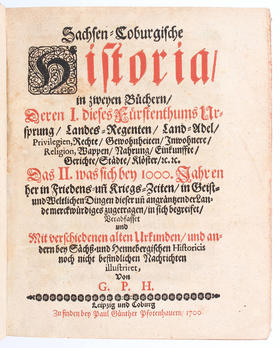 Sachsen-Coburgische
Historia/
in zweyen Büchern/
Deren I. dieses Fürstenthums Ur-
sprung/ Landes-Regenten/ Land-Adel/
Privilegien, Rechte/ Gewohnheiten/ Inwohnere/
Religion, Wappen/ Nahrung/ Einkunffte/
Gerichte/ Städte/ Klöster/ ꝛc. ꝛc.
Das II. was sich bey 1000. Jahren
her in Friedens-uñ Kriegs-Zeiten/ in Geist-
und Weltlichen Dingen dieser uñ angräntzender Lan-
de merckwürdiges zugetragen/ in sich begreifet/
Verabfasset
und
Mit verschiedenen alten Urkunden/ und an-
dern bey Sächß- und Hennebergischen Historicis
noch nicht befindlichen Nachrichten
illustriret,
Von
G. P. H.
Leipzig und Coburg
Zu finden bey Paul Günther Pfotenhauern/ 1700